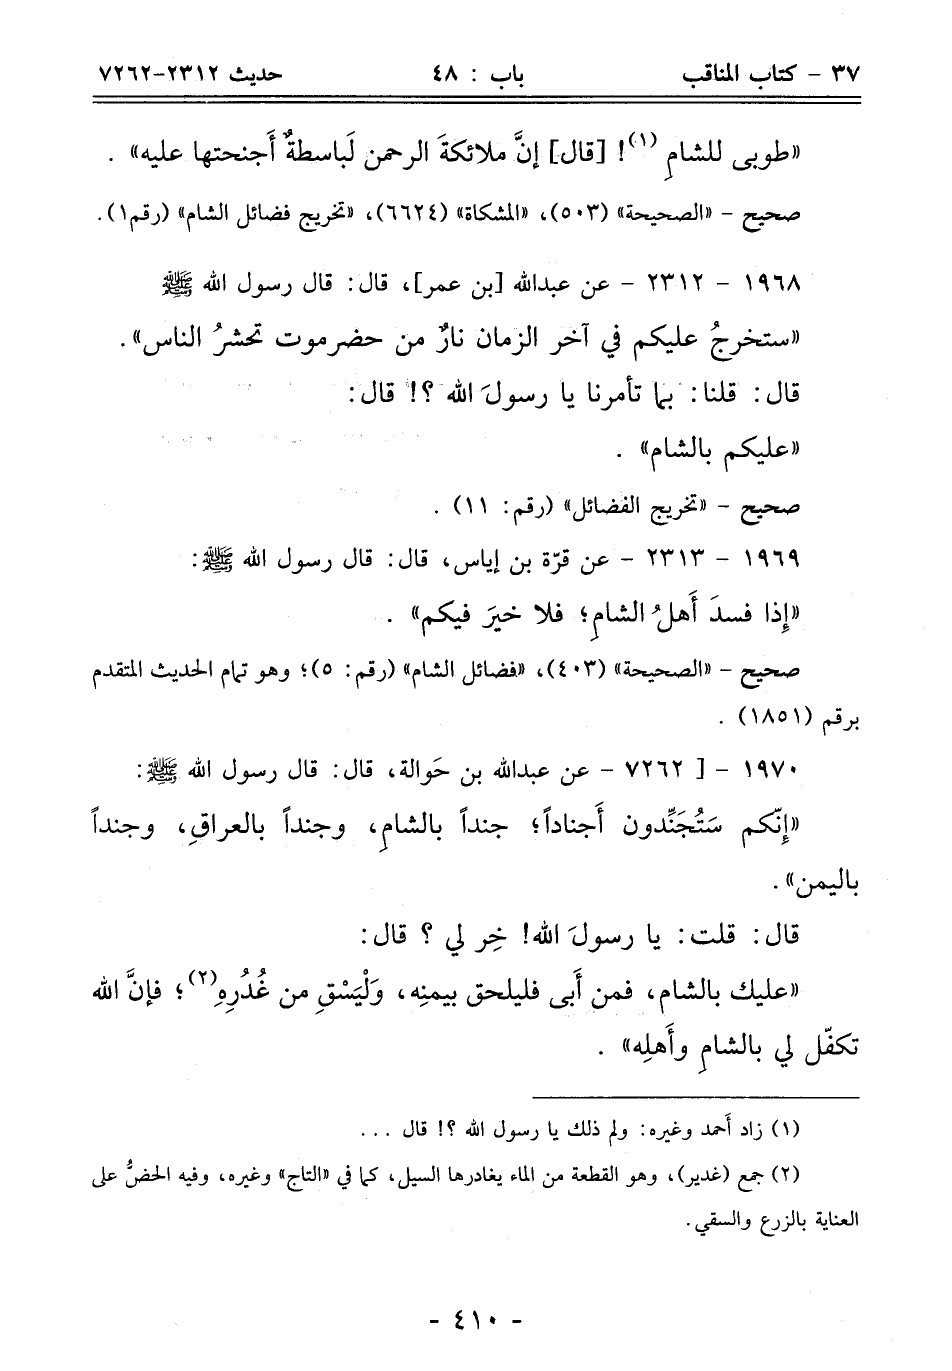 ٣٧ - كتاب المناقب باب : ٤٨ حديث ٢٣١٢-٧٢٦٢
«طوبى للشامِ (١)! [قال] إنَّ ملائكةَ الرحمن لَباسطةٌ أَجنحتها عليه» .
صحيح - «الصحيحة» (٥٠٣)، «المشكاة» (٦٦٢٤)، «تخريج فضائل الشام» (رقم١).
١٩٦٨ - ٢٣١٢ - عن عبدالله [بن عمر]، قال: قال رسول الله ﷺ
«ستخرجُ عليكم في آخر الزمان نارٌ من حضرموت تحشرُ الناس» .
قال: قلنا: بما تأمرنا يا رسولَ الله ؟! قال:
«عليكم بالشام» .
صحيح - «تخريج الفضائل» (رقم: ١١) .
١٩٦٩ - ٢٣١٣ - عن قرّة بن إياس، قال: قال رسول الله ﷺ:
«إِذا فسدَ أَهلُ الشامِ؛ فلا خيرَ فيكم» .
صحيح - «الصحيحة» (٤٠٣)، «فضائل الشام» (رقم: ٥)؛ وهو تمام الحديث المتقدم
برقم (١٨٥١) .
١٩٧٠ - [ ٧٢٦٢ - عن عبدالله بن حَوالة، قال: قال رسول الله ﷺ:
«إنّكم سَتُجَنِّدون أَجناداً؛ جنداً بالشامِ، وجنداً بالعراقِ، وجنداً
باليمن» .
قال: قلت: يا رسولَ الله! خِر لي ؟ قال:
«عليك بالشام، فمن أَبى فليلحق بيمنِه، وَلْيَسْقِ من غُدُرِهِ(٢)؛ فإنَّ الله
تكفّل لي بالشامِ وأَهلِه» .
(١) زاد أَحمد وغيره: ولم ذلك يا رسول الله ؟! قال ...
(٢) جمع (غدير)، وهو القطعة من الماء يغادرها السيل، كما في «التاج» وغيره، وفيه الحضُّ على
العناية بالزرع والسقي.
- ٤١٠ -